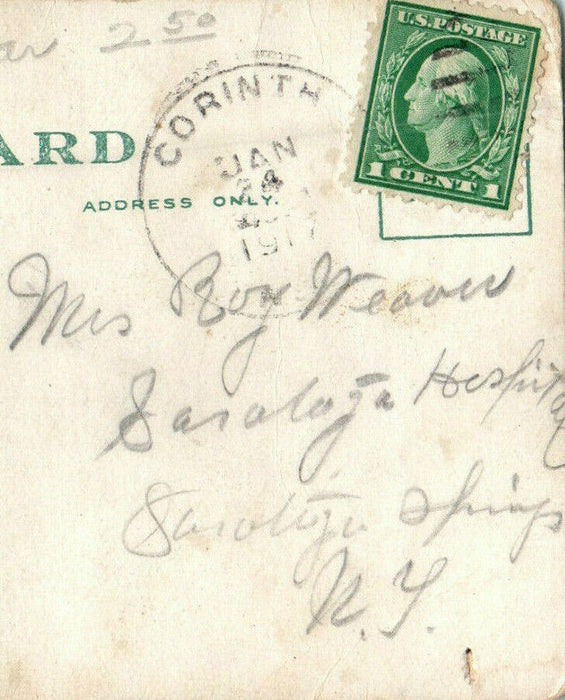 2 50
U.S. POSTAGE
1 CENT 1
CORINTH
JAN
24
1917
ARD
ADDRESS ONLY.
Mrs Roy Weaver
Saratoga Hospital
Saratoga Springs
N.Y.